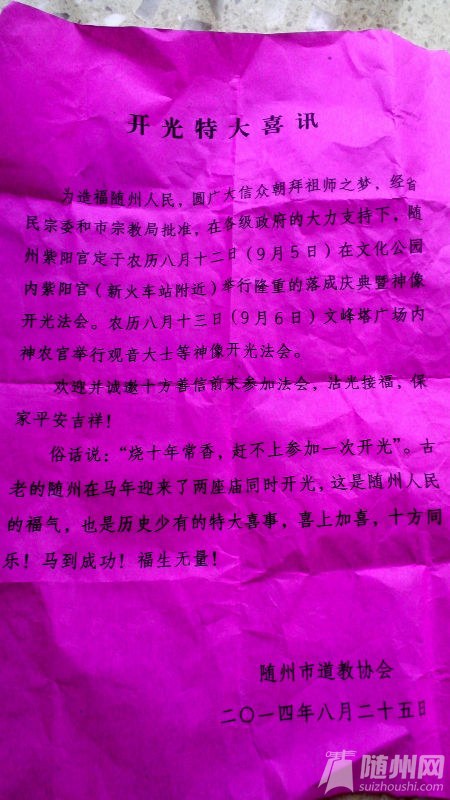 开光特大喜讯
为造福随州人民，圆广大信众朝拜祖师之梦，经省
民宗委和市宗教局批准，在各级政府的大力支持下，随
州紫阳宫定于农历八月十二日（9月5日）在文化公园
内紫阳宫（新火车站附近）举行隆重的落成庆典暨神像
开光法会。农历八月十三日（9月6日）文峰塔广场内
神农宫举行观音大士等神像开光法会。
欢迎并诚邀十方善信前来参加法会，沾光接福，保
家平安吉祥！
俗话说：“烧十年常香，赶不上参加一次开光”。古
老的随州在马年迎来了两座庙同时开光，这是随州人民
的福气，也是历史少有的特大喜事，喜上加喜，十方同
乐！马到成功！福生无量！
随州市道教协会
二〇一四年八月二十五日
随州网
suizhoushi.com